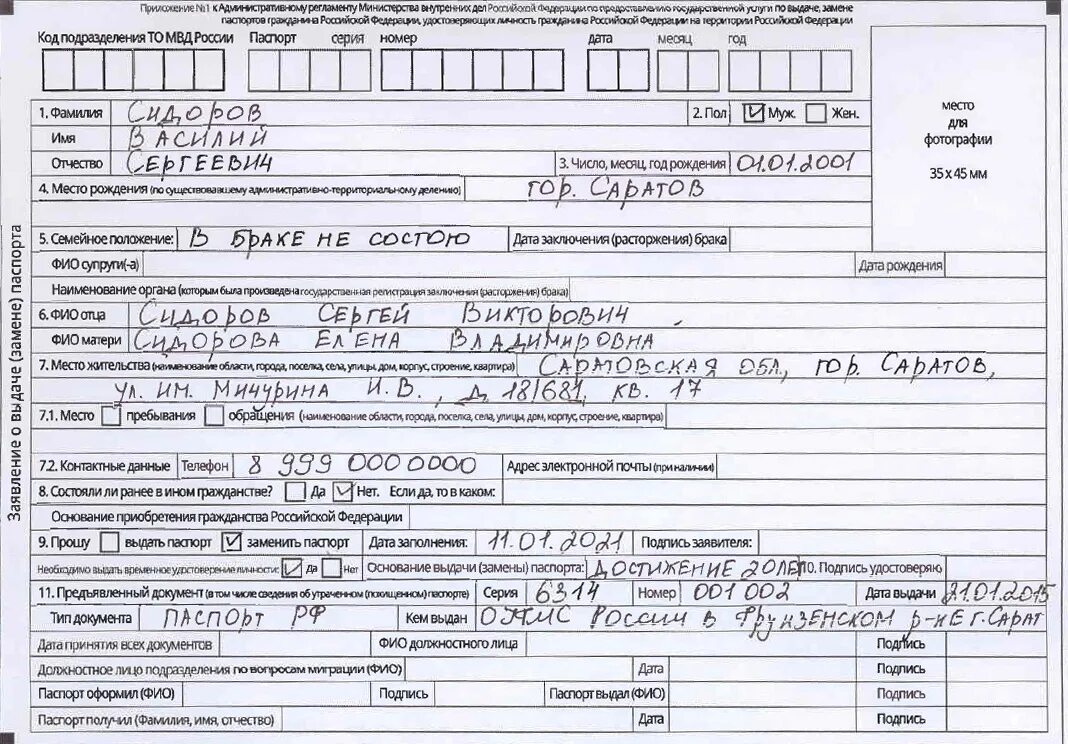 Приложение №1 к Административному регламенту Министерства внутренних дел Российской Федерации по предоставлению государственной услуги по выдаче, замене
паспортов гражданина Российской Федерации, удостоверяющих личность гражданина Российской Федерации на территории Российской Федерации
Код подразделения ТО МВД России Паспорт серия номер дата месяц год
место
для
фотографии
35 х 45 мм
Заявление о выдаче (замене) паспорта
1. Фамилия Сидоров 2. Пол Муж. Жен.
Имя Василий
Отчество Сергеевич 3. Число, месяц, год рождения 01.01.2001
4. Место рождения (по существовавшему административно-территориальному делению) гор. Саратов
5. Семейное положение: в браке не состою Дата заключения (расторжения) брака
ФИО супруги(-а) Дата рождения
Наименование органа (которым была произведена государственная регистрация заключения (расторжения) брака)
6. ФИО отца Сидоров Сергей Викторович
ФИО матери Сидорова Елена Владимировна
7. Место жительства (наименование области, города, поселка, села, улицы, дом, корпус, строение, квартира) Саратовская обл, гор. Саратов,
ул. им. Мичурина И.В., д. 181/681, кв. 17
7.1. Место пребывания обращения (наименование области, города, поселка, села, улицы, дом, корпус, строение, квартира)
7.2. Контактные данные Телефон 8 999 000 0000 Адрес электронной почты (при наличии)
8. Состояли ли ранее в ином гражданстве? Да Нет. Если да, то в каком:
Основание приобретения гражданства Российской Федерации
9. Прошу выдать паспорт заменить паспорт Дата заполнения: 11.01.2021 Подпись заявителя:
Необходимо выдать временное удостоверение личности: Да Нет Основание выдачи (замены) паспорта: достижение 20 лет 10. Подпись удостоверяю
11. Предъявленный документ (в том числе сведения об утраченном (похищенном) паспорте) Серия 6314 Номер 001 002 Дата выдачи 21.01.2015
Тип документа паспорт РФ Кем выдан ОУФМС России в Фрунзенском р-не г. Сарат
Дата принятия всех документов ФИО должностного лица Подпись
Должностное лицо подразделения по вопросам миграции (ФИО) Дата Подпись
Паспорт оформил (ФИО) Подпись Паспорт выдал (ФИО) Подпись
Паспорт получил (Фамилия, имя, отчество) Дата Подпись